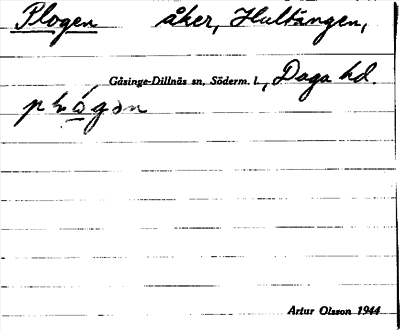 Plogen åker, Hultängen,
Gåsinge-Dillnäs sn, Söderm. l., Daga hd.
Artur Olsson 1944